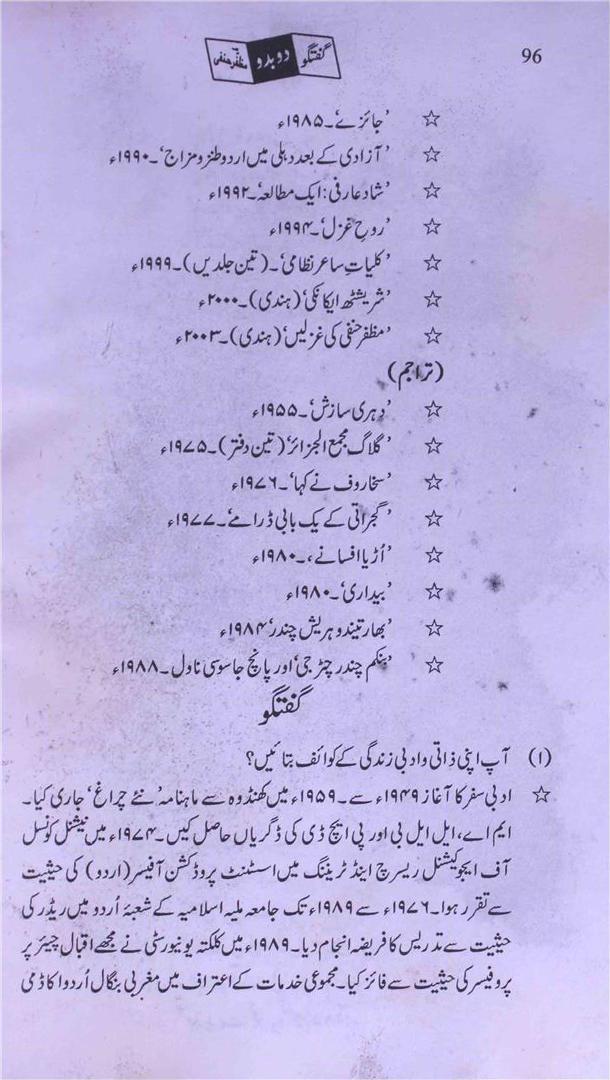 گفتگو دو بدو مظفر حنفی
96
☆ 'جائزے'۔ ۱۹۸۵ء
☆ 'آزادی کے بعد دہلی میں اردو طنز و مزاح'۔ ۱۹۹۰ء
☆ 'شاد عارفی: ایک مطالعہ'۔ ۱۹۹۲ء
☆ 'روحِ غزل'۔ ۱۹۹۴ء
☆ 'کلیاتِ ساغر نظامی'۔ (تین جلدیں)۔ ۱۹۹۹ء
☆ 'شریشٹھ ایکانکی' (ہندی)۔ ۲۰۰۰ء
☆ 'مظفر حنفی کی غزلیں' (ہندی)۔ ۲۰۰۳ء
(تراجم)
☆ 'دہری سازش'۔ ۱۹۵۵ء
☆ 'گلاگ مجمع الجزائر' (تین دفتر)۔ ۱۹۷۵ء
☆ 'سخاروف نے کہا'۔ ۱۹۷۶ء
☆ 'گجراتی کے یک بابی ڈرامے'۔ ۱۹۷۷ء
☆ 'اُڑیا افسانے'،۔ ۱۹۸۰ء
☆ 'بیداری'۔ ۱۹۸۰ء
☆ 'بھارتیندو ہریش چندر' ۱۹۸۴ء
☆ 'بنکم چندر چٹرجی' اور پانچ جاسوسی ناول۔ ۱۹۸۸ء
گفتگو
(۱) آپ اپنی ذاتی و ادبی زندگی کے کوائف بتائیں؟
☆ ادبی سفر کا آغاز ۱۹۴۹ء سے۔ ۱۹۵۹ء میں کھنڈوہ سے ماہنامہ 'نئے چراغ' جاری کیا۔
ایم اے، ایل ایل بی اور پی ایچ ڈی کی ڈگریاں حاصل کیں۔ ۱۹۷۴ء میں نیشنل کونسل
آف ایجوکیشنل ریسرچ اینڈ ٹریننگ میں اسسٹنٹ پروڈکشن آفیسر (اردو) کی حیثیت
سے تقرر ہوا۔ ۱۹۷۶ء سے ۱۹۸۹ء تک جامعہ ملیہ اسلامیہ کے شعبۂ اُردو میں ریڈر کی
حیثیت سے تدریس کا فریضہ انجام دیا۔ ۱۹۸۹ء میں کلکتہ یونیورسٹی نے مجھے اقبال چیئر پر
پروفیسر کی حیثیت سے فائز کیا۔ مجموعی خدمات کے اعتراف میں مغربی بنگال اُردو اکاڈمی